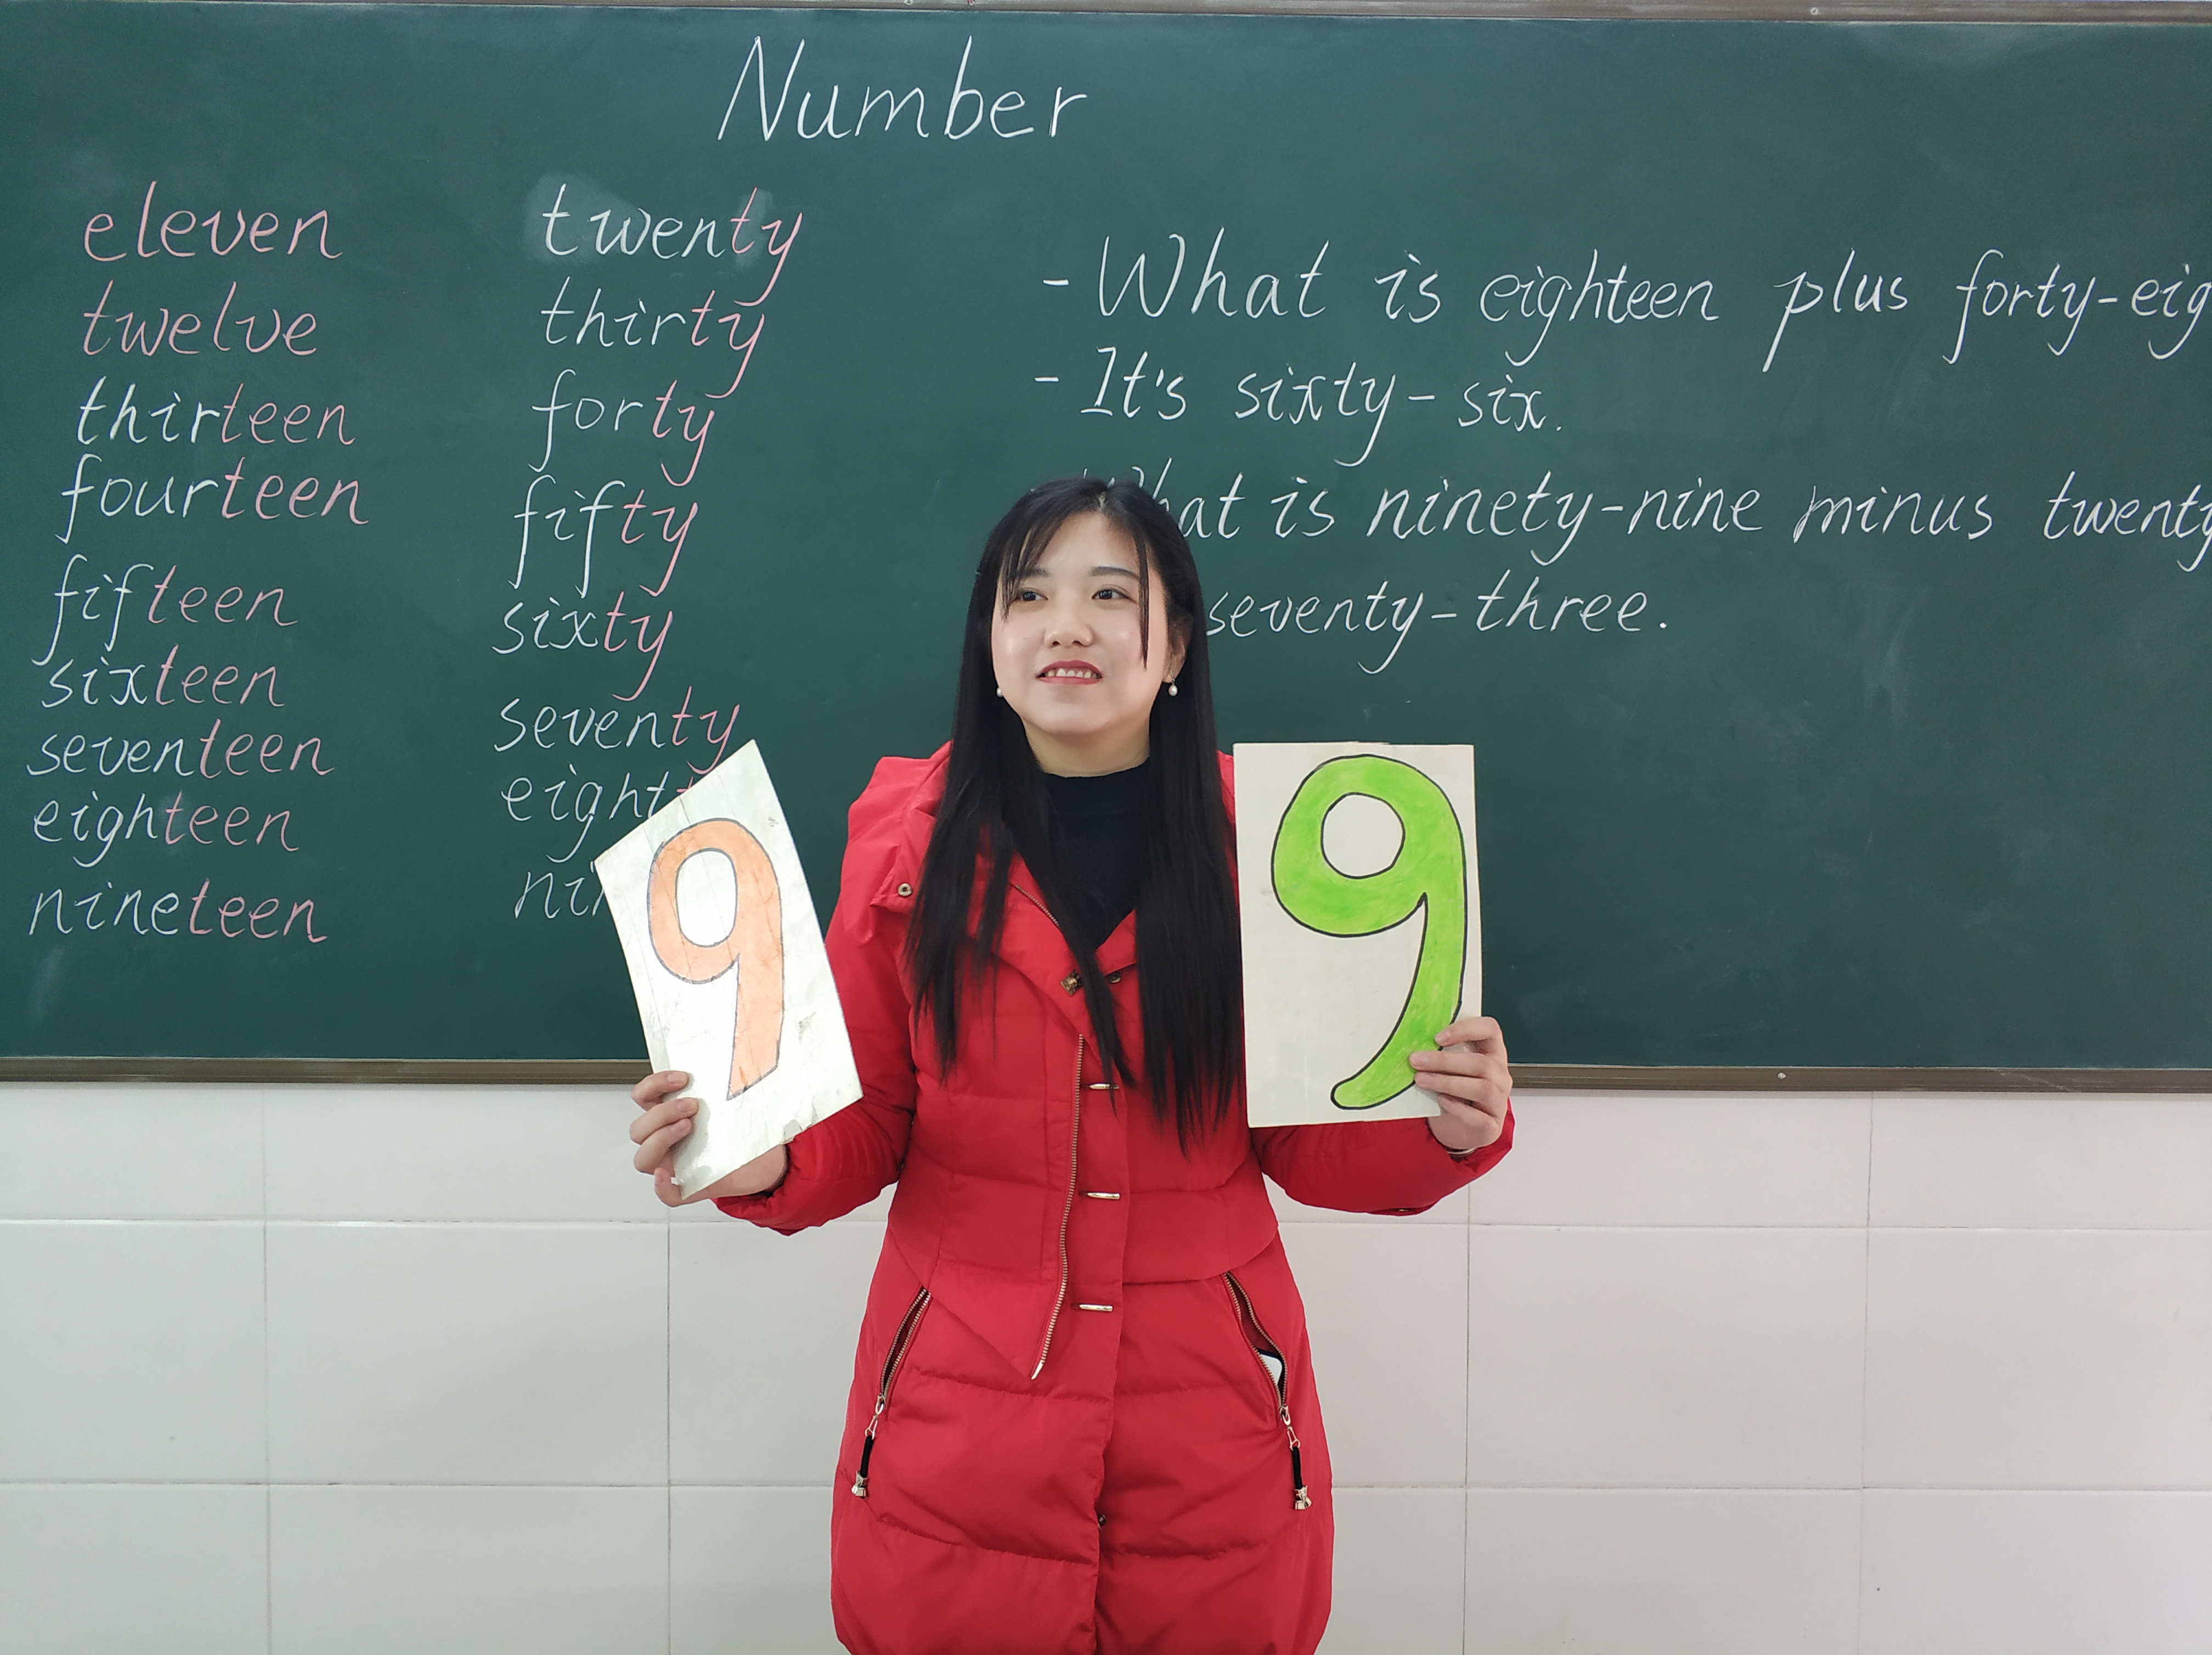 Number
eleven
twelve
thirteen
fourteen
fifteen
sixteen
seventeen
eighteen
nineteen
twenty
thirty
forty
fifty
sixty
seventy
- What is eighteen plus
- It's sixty-six.
is ninety-nine minus
seventy-three.
9
9